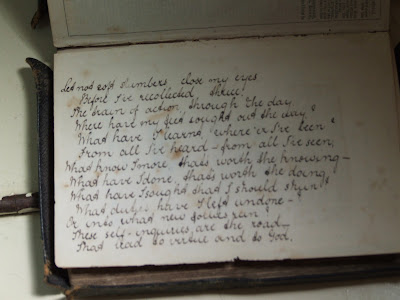 Let not soft slumbers close my eyes
Before I've recollected thrice!
The train of action through the day,
Where have my feet sought out the day?
What have I learnd where'er I've been
From all I've heard - from all I've seen,
What know I more that's worth the knowing -
What have I done, that's worth the doing
What have I sought that I should shun!
What duties have I left undone -
Or into what new follies run?
These self-inquiries, are the road
That lead to virtue and to God.